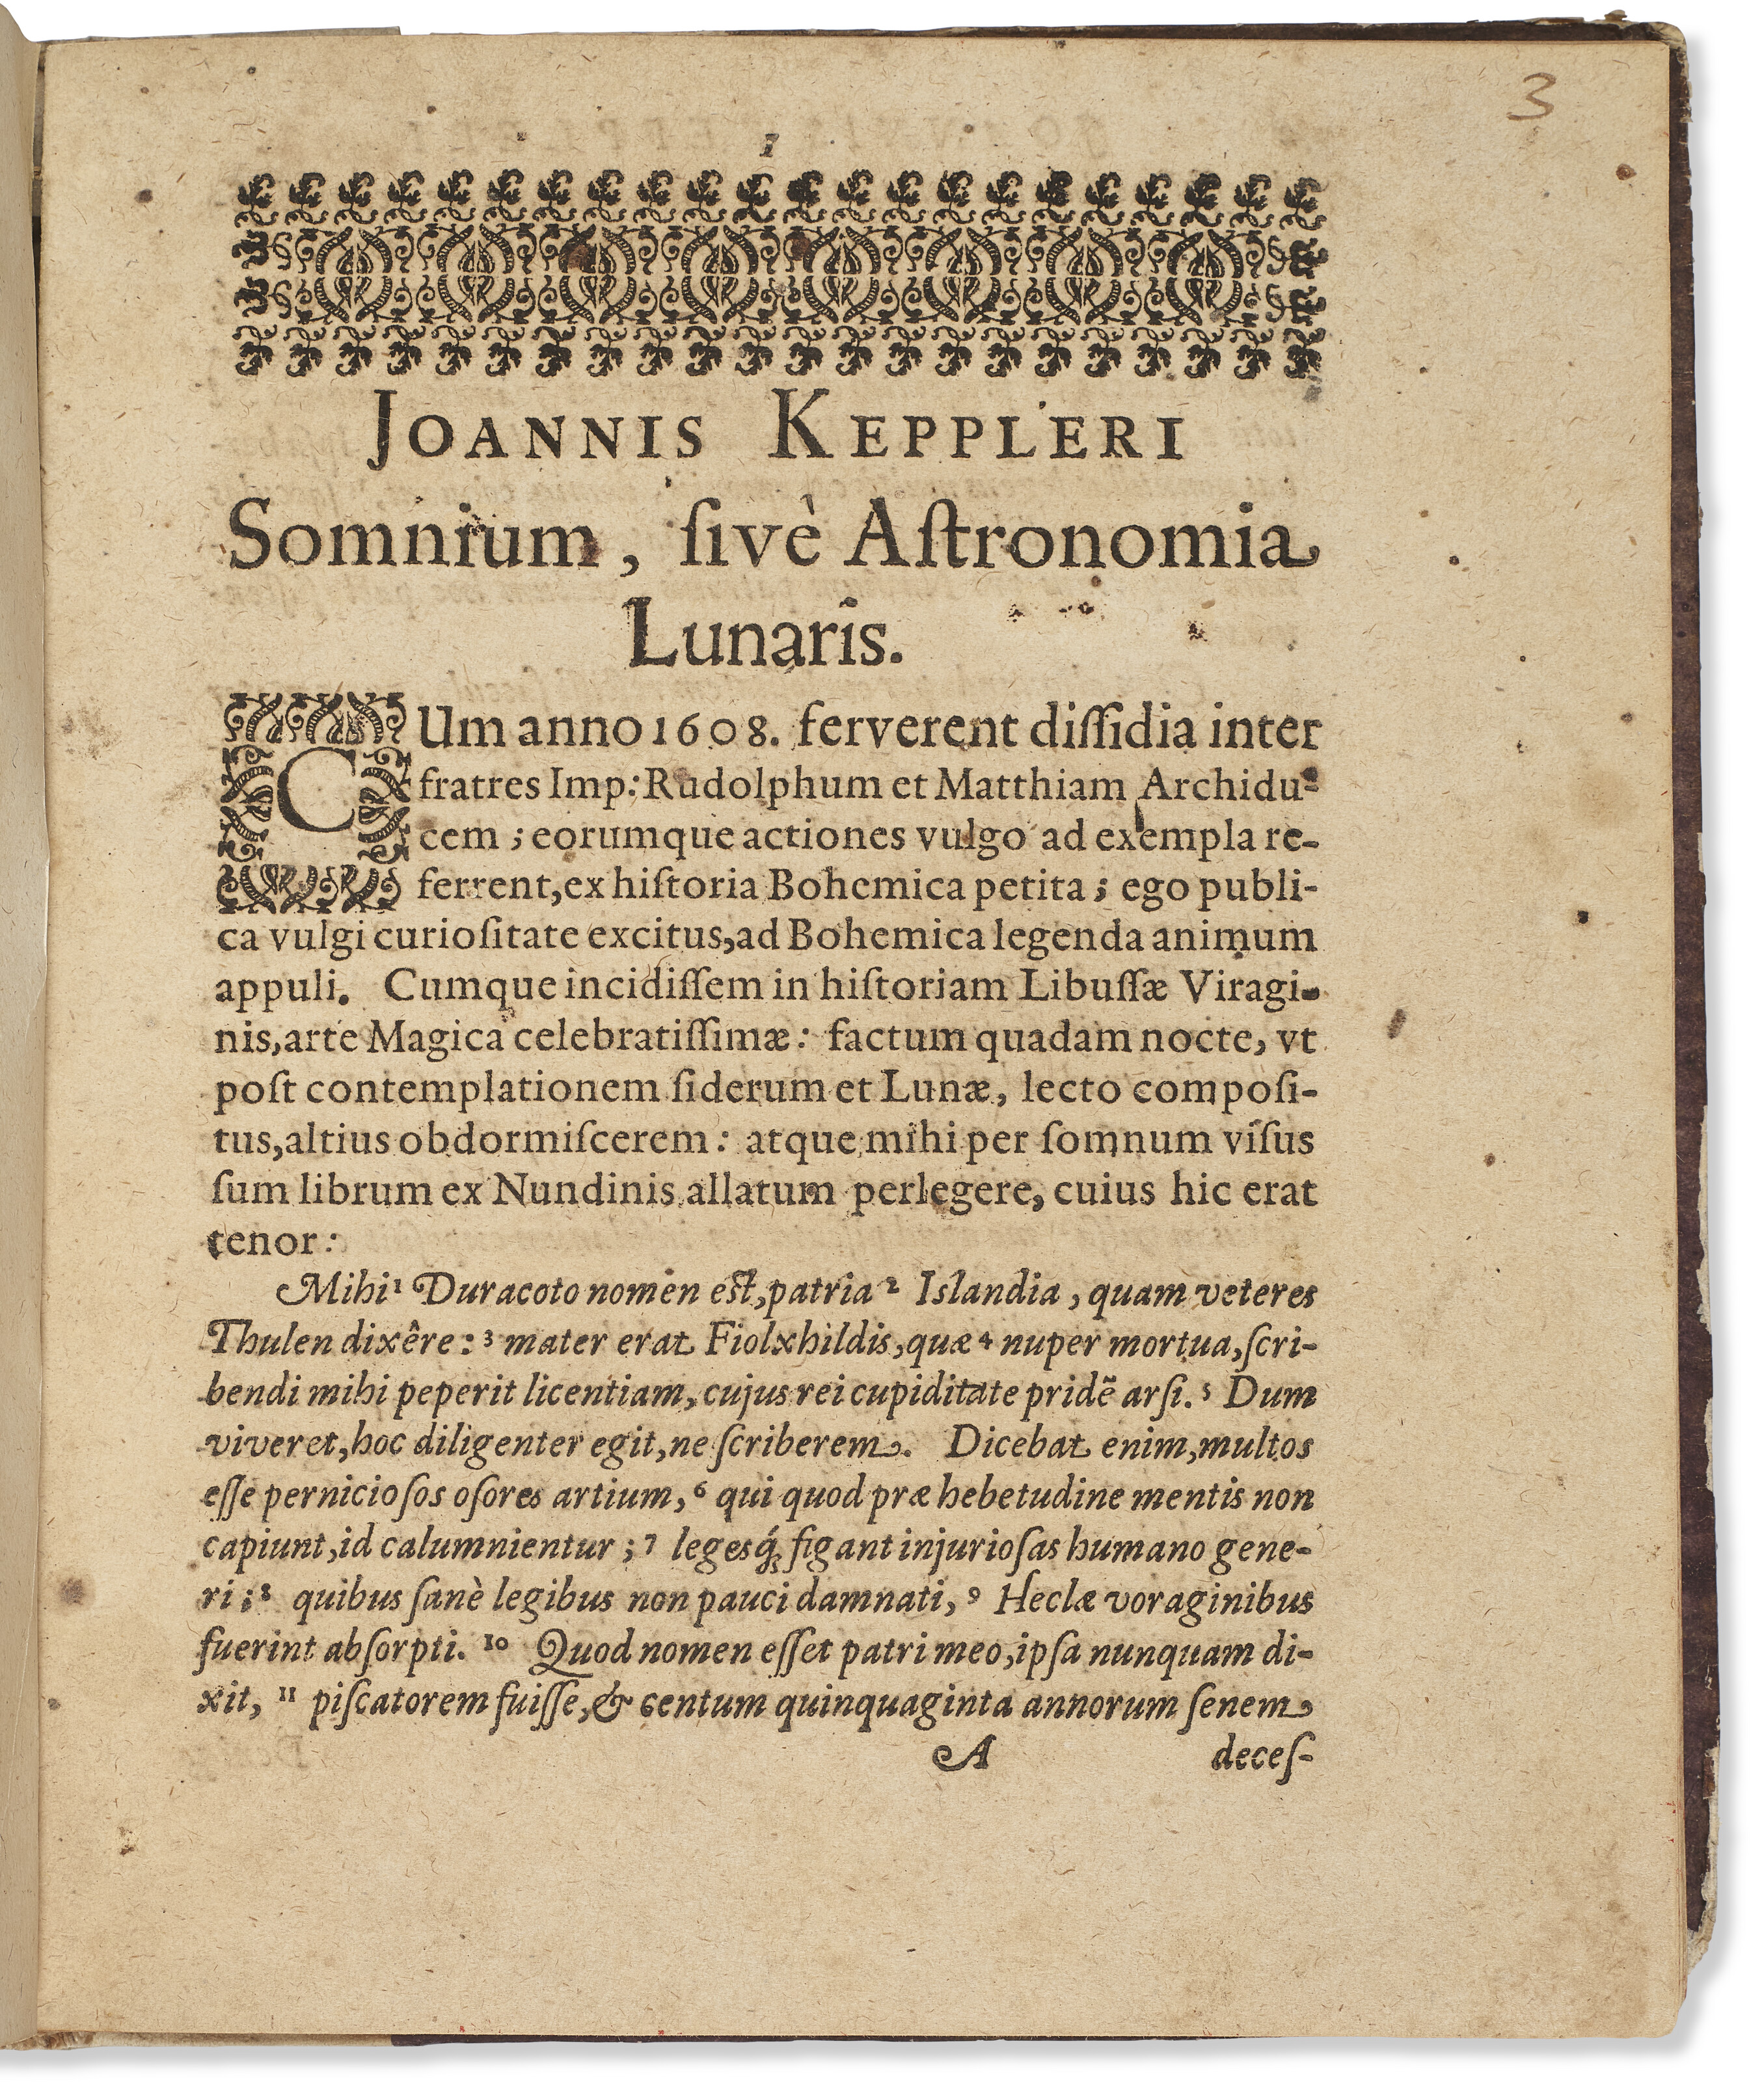 3
1
JOANNIS KEPPLERI
Somnium, ſivè Aſtronomia
Lunaris.
CUm anno 1608. ferverent diſſidia inter
fratres Imp: Rudolphum et Matthiam Archidu-
cem; eorumque actiones vulgo ad exempla re-
ferrent, ex hiſtoria Bohemica petita; ego publi-
ca vulgi curioſitate excitus, ad Bohemica legenda animum
appuli. Cumque incidiſſem in hiſtoriam Libuſſæ Viragi-
nis, arte Magica celebratiſſimæ: factum quadam nocte, vt
poſt contemplationem ſiderum et Lunæ, lecto compoſi-
tus, altius obdormiſcerem: atque mihi per ſomnum viſus
ſum librum ex Nundinis allatum perlegere, cuius hic erat
tenor:
Mihi ¹ Duracoto nomen eſt, patria ² Islandia, quam veteres
Thulen dixêre: ³ mater erat Fiolxhildis, quæ ⁴ nuper mortua, ſcri-
bendi mihi peperit licentiam, cujus rei cupiditate pridẽ arſi. ⁵ Dum
viveret, hoc diligenter egit, ne ſcriberem. Dicebat enim, multos
eſſe pernicioſos oſores artium, ⁶ qui quod præ hebetudine mentis non
capiunt, id calumnientur; ⁷ legesq́; figant injurioſas humano gene-
ri; ⁸ quibus ſanè legibus non pauci damnati, ⁹ Heclæ voraginibus
fuerint abſorpti. ¹⁰ Quod nomen eſſet patri meo, ipſa nunquam di-
xit, ¹¹ piſcatorem fuiſſe, & centum quinquaginta annorum ſenem
A deceſ-